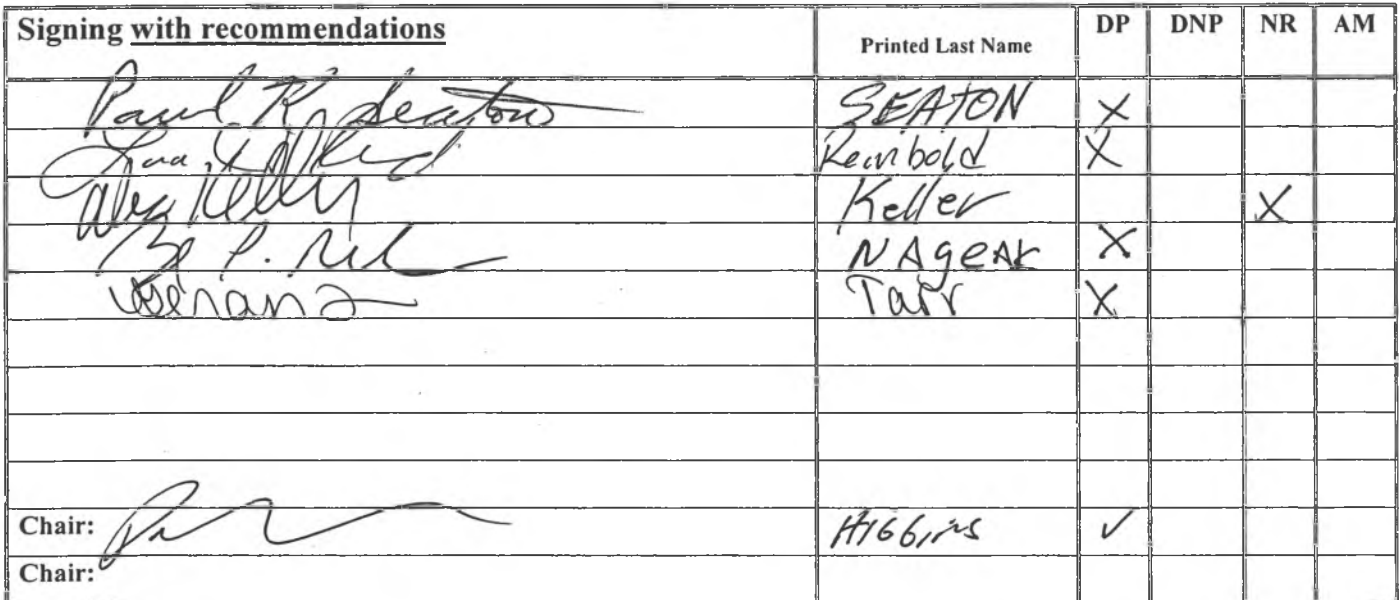 Signing with recommendations Printed Last Name DP DNP NR AM
Paul K. Seaton SEATON X
Reinbold X
Keller X
NAgeAk X
Tarr X
Chair: HIGGins ✓
Chair: